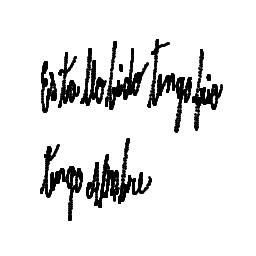 Es ta llo bido tengo frio
tengo ambre